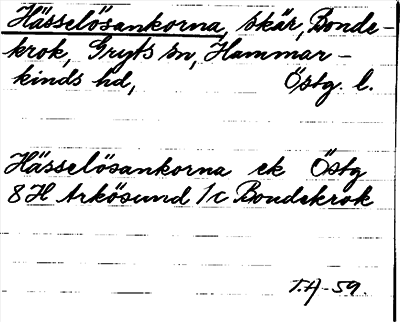 Hässelösankorna, skär, Bonde-
krok, Gryts sn, Hammar-
kinds hd, Östg. l.
Hässelösankorna ek Östg
8H Arkösund 1c Bondekrok
T.A-59.